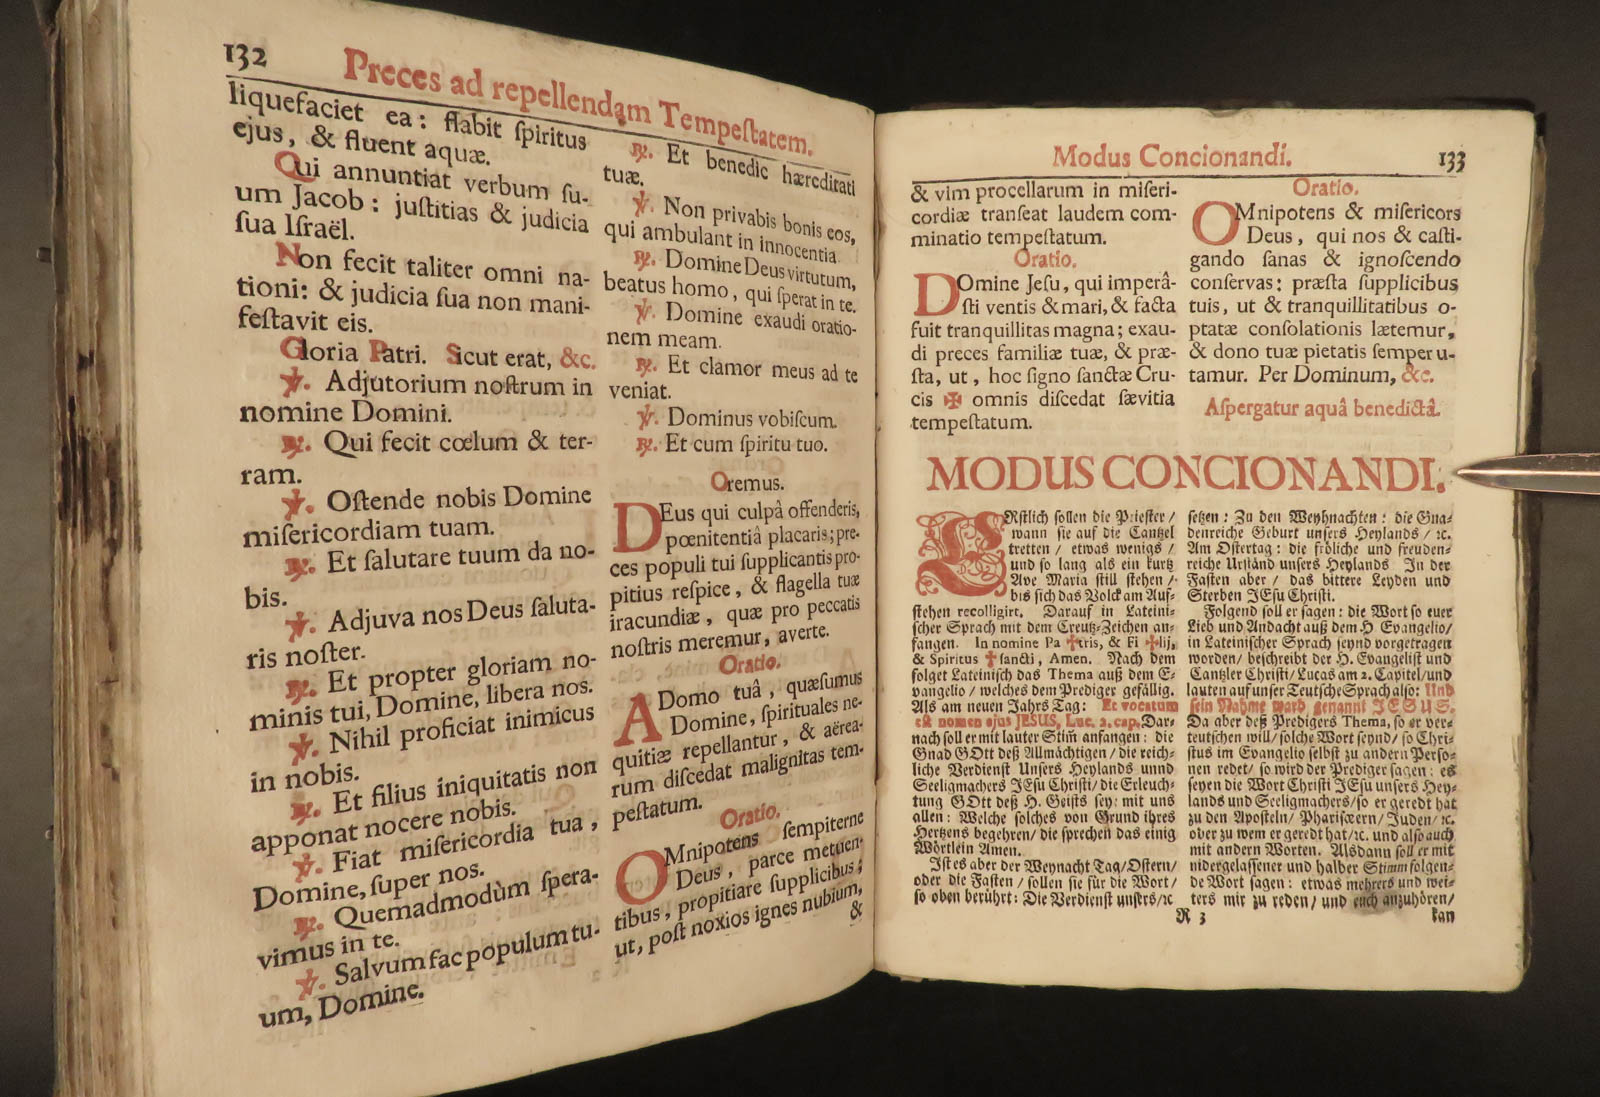 132
Preces ad repellendam Tempeſtatem.
liquefaciet ea: flabit ſpiritus
ejus, & fluent aquæ.
Qui annuntiat verbum ſu-
um Jacob: juſtitias & judicia
ſua Iſraël.
Non fecit taliter omni na-
tioni: & judicia ſua non mani-
feſtavit eis.
Gloria Patri. Sicut erat, &c.
℣. Adjutorium noſtrum in
nomine Domini.
℟. Qui fecit cœlum & ter-
ram.
℣. Oſtende nobis Domine
miſericordiam tuam.
℟. Et ſalutare tuum da no-
bis.
℣. Adjuva nos Deus ſaluta-
ris noſter.
℟. Et propter gloriam no-
minis tui, Domine, libera nos.
℣. Nihil proficiat inimicus
in nobis.
℟. Et filius iniquitatis non
apponat nocere nobis.
℣. Fiat miſericordia tua,
Domine, ſuper nos.
℟. Quemadmodùm ſpera-
vimus in te.
℣. Salvum fac populum tu-
um, Domine.
℟. Et benedic hæreditati
tuæ.
℣. Non privabis bonis eos,
qui ambulant in innocentia.
℟. Domine Deus virtutum,
beatus homo, qui ſperat in te.
℣. Domine exaudi oratio-
nem meam.
℟. Et clamor meus ad te
veniat.
℣. Dominus vobiſcum.
℟. Et cum ſpiritu tuo.
Oremus.
DEus qui culpâ offenderis,
pœnitentiâ placaris; pre-
ces populi tui ſupplicantis pro-
pitius reſpice, & flagella tuæ
iracundiæ, quæ pro peccatis
noſtris meremur, averte.
Oratio.
A Domo tuâ, quæſumus
Domine, ſpirituales ne-
quitiæ repellantur, & aërea-
rum diſcedat malignitas tem-
peſtatum.
Oratio.
OMnipotens ſempiterne
Deus, parce metuen-
tibus, propitiare ſupplicibus;
ut, poſt noxios ignes nubium,
&
Modus Concionandi.
133
& vim procellarum in miſeri-
cordiæ tranſeat laudem com-
minatio tempeſtatum.
Oratio.
DOmine Jeſu, qui imperâ-
ſti ventis & mari, & facta
fuit tranquillitas magna; exau-
di preces familiæ tuæ, & præ-
ſta, ut, hoc ſigno ſanctæ Cru-
cis ✠ omnis diſcedat ſævitia
tempeſtatum.
Oratio.
OMnipotens & miſericors
Deus, qui nos & caſti-
gando ſanas & ignoſcendo
conſervas: præſta ſupplicibus
tuis, ut & tranquillitatibus o-
ptatæ conſolationis lætemur,
& dono tuæ pietatis ſemper u-
tamur. Per Dominum, &c.
Aſpergatur aquâ benedictâ.
MODUS CONCIONANDI.
ERſtlich ſollen die Prieſter /
wann ſie auf die Cantzel
tretten / etwas wenigs /
und ſo lang als ein kurtz
Ave Maria ſtill ſtehen /
bis ſich das Volck am Auf-
ſtehen recolligirt. Darauf in Lateini-
ſcher Sprach mit dem Creutz-Zeichen an-
fangen. In nomine Pa ✝tris, & Fi ✝lij,
& Spiritus ✝ ſancti, Amen. Nach dem
folget Lateiniſch das Thema auß dem E-
vangelio / welches dem Prediger gefällig.
Als am neuen Jahrs Tag: Et vocatum
eſt nomen ejus JESUS, Luc. 2. cap. Dar-
nach ſoll er mit lauter Stim̃ anfangen: die
Gnad GOtt deß Allmächtigen / die reich-
liche Verdienſt Unſers Heylands unnd
Seeligmachers JEſu Chriſti / die Erleuch-
tung GOtt deß H. Geiſts ſey: mit uns
allen: Welche ſolches von Grund ihres
Hertzens begehren / die ſprechen das einig
Wörtlein Amen.
Iſt es aber der Weynacht Tag / Oſtern /
oder die Faſten / ſollen ſie für die Wort /
ſo oben berührt: Die Verdienſt unſers / ꝛc
ſetzen: Zu den Weyhnachten: die Gna-
denreiche Geburt unſers Heylands / ꝛc.
Am Oſtertag: die fröliche und freuden-
reiche Urſtänd unſers Heylands In der
Faſten aber / das bittere Leyden und
Sterben JEſu Chriſti.
Folgend ſoll er ſagen: die Wort ſo euer
Lieb und Andacht auß dem H Evangelio /
in Lateiniſcher Sprach ſeynd vorgetragen
worden / beſchreibt der H. Evangeliſt und
Cantzler Chriſti / Lucas am 2. Capitel / und
lauten auf unſer Teutſche Sprach alſo: Und
ſein Nahme ward genannt JESUS.
Da aber deß Predigers Thema, ſo er ver-
teutſchen will / ſolche Wort ſeynd / ſo Chri-
ſtus im Evangelio ſelbſt zu andern Perſo-
nen redet / ſo wird der Prediger ſagen: es
ſeyen die Wort Chriſti JEſu unſers Hey-
lands und Seeligmachers / ſo er geredt hat
zu den Apoſteln / Phariſæern / Juden / ꝛc.
ober zu wem er geredt hat / ꝛc. und alſo auch
mit andern Worten. Alsdann ſoll er mit
nidergelaſſener und halber Stimm folgen-
de Wort ſagen: etwas mehrers und wei-
ters mir zu reden / und euch anzuhören /
R 3
kan